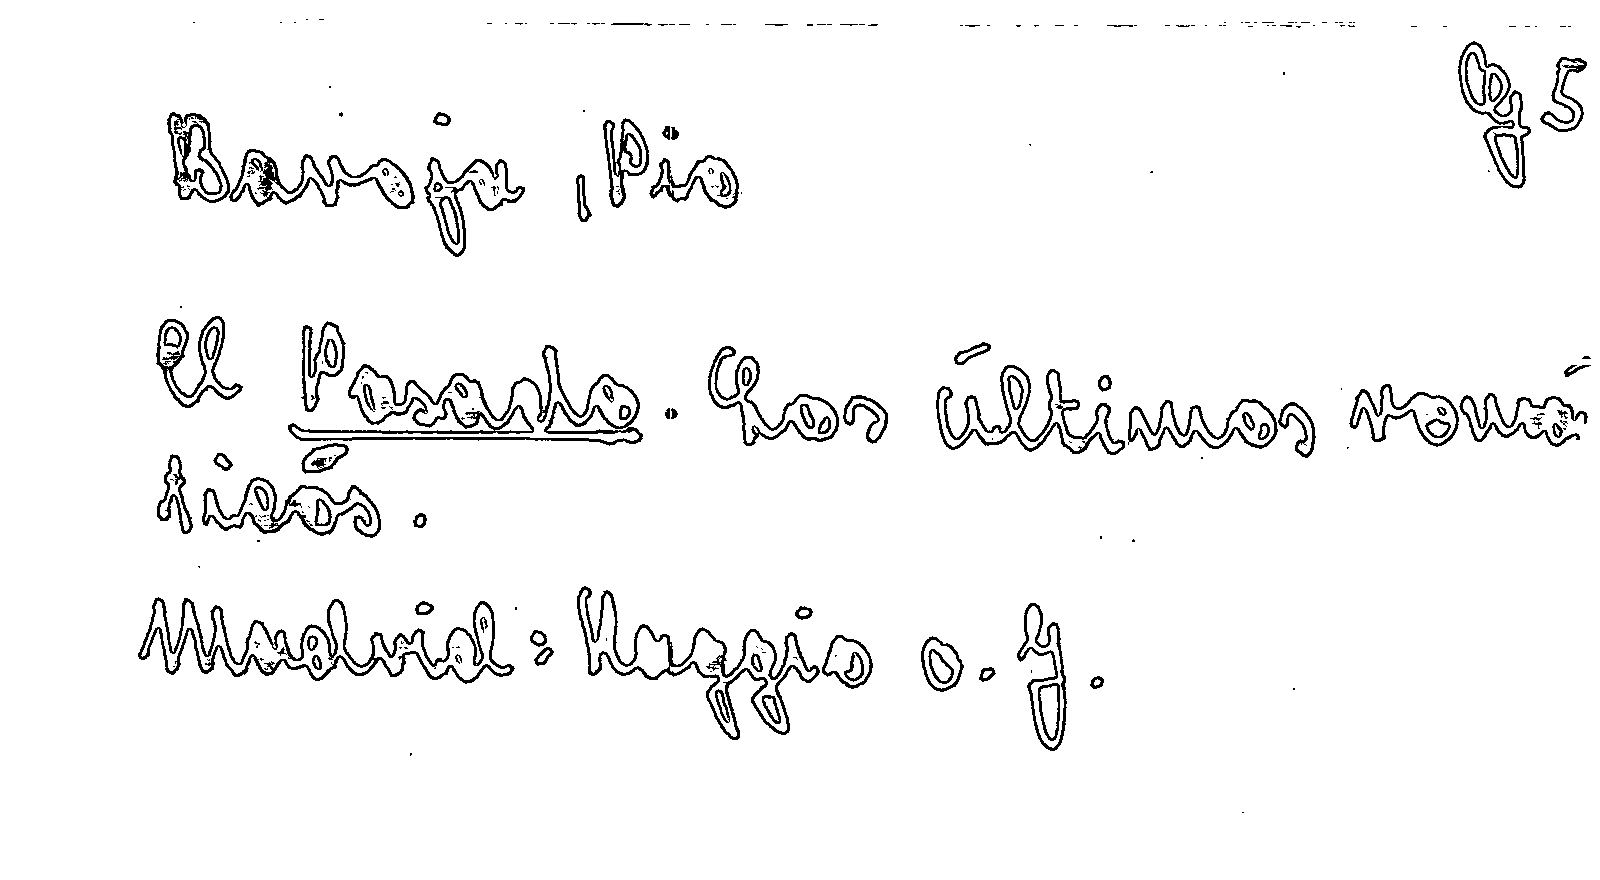 Baroja, Pio
El Pasado. Los últimos román
ticós.
Madrid: Raggio o. J.